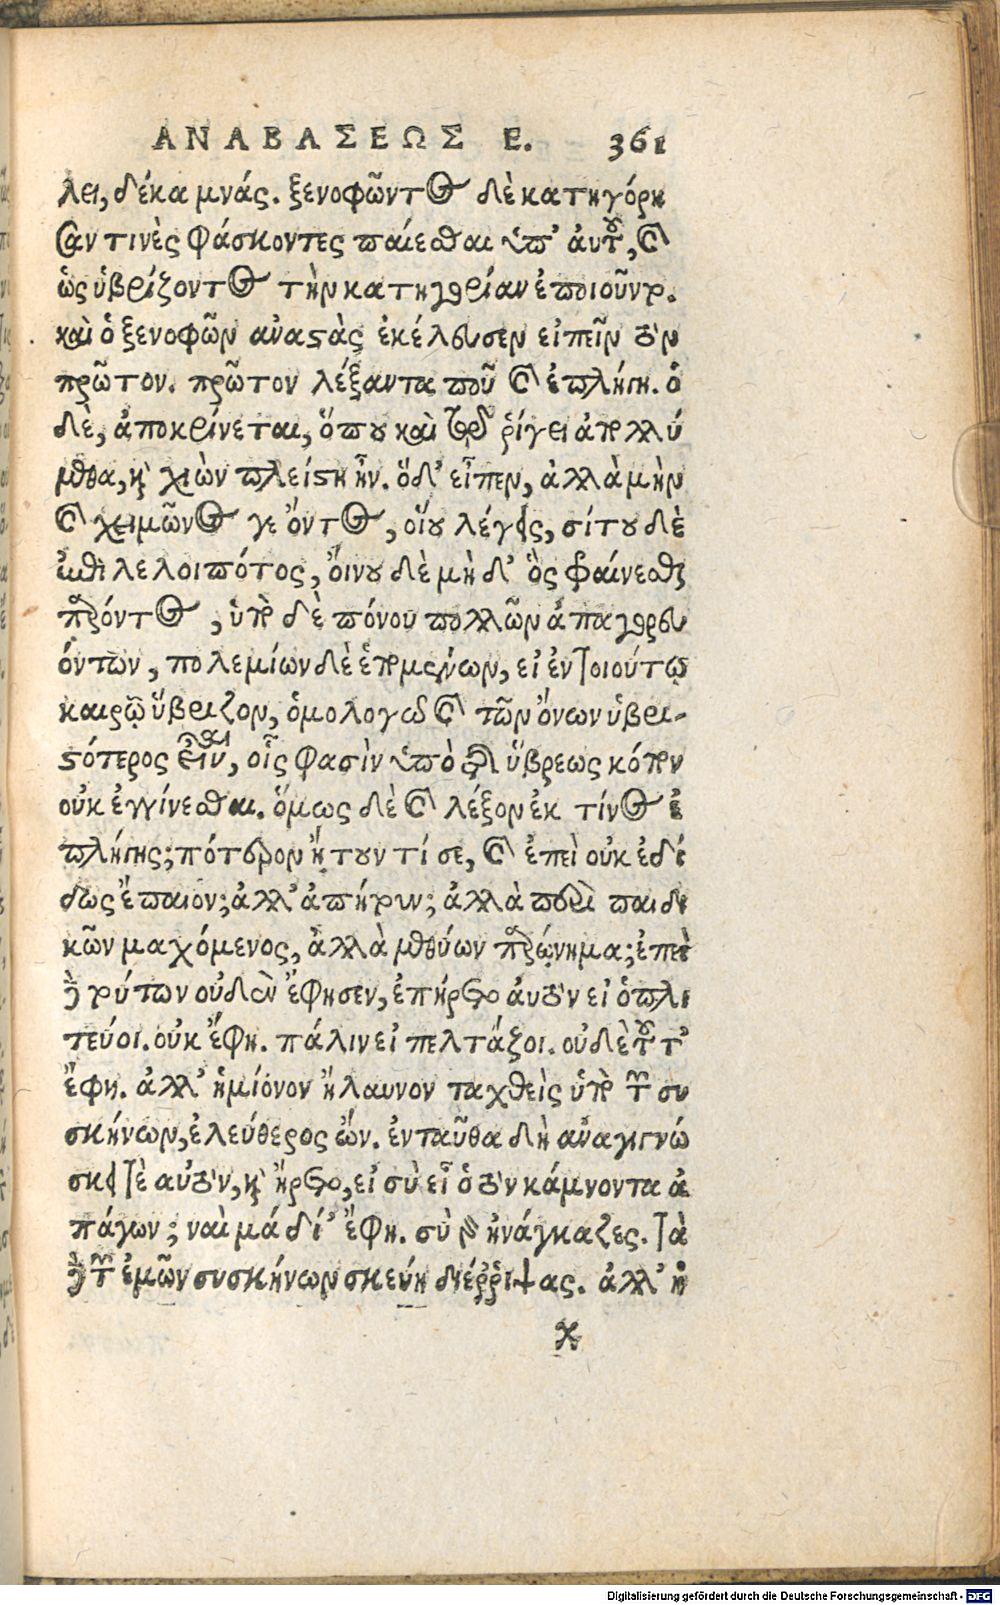 ΑΝΑΒΑΣΕΩΣ Ε. 361
λει, δέκα μνάς. ξενοφῶντος δὲ κατηγόρη
σαν τινὲς φάσκοντες παίεσθαι ὑπ' ἀυτοῦ, καὶ
ὡς ὑβρίζοντος τὴν κατηγορίαν ἐποιοῦντο.
καὶ ὁ ξενοφῶν ἀναστὰς ἐκέλευσεν εἰπεῖν τὸν
πρῶτον. πρῶτον λέξαντα ποῦ καὶ ἐπλήγη. ὁ
δὲ, ἀποκρίνεται, ὅπου καὶ τῷ ῥίγει ἀπολλύ
μεθα, καὶ χιὼν πλείστη ἦν. ὅδ' εἶπεν, ἀλλὰ μὴν
καὶ χειμῶνος γε ὄντος, οἵου λέγεις, σίτου δὲ
ἐπιλελοιπότος, ὄινου δὲ μὴ δ' ὃς φαίνεσθαι
παρόντος, ὑπὸ δὲ πόνου πολλῶν ἀπαγορευ
όντων, πολεμίων δὲ ἑπομένων, εἰ ἐν τοιούτῳ
καιρῷ ὕβριζον, ὁμολογῶ καὶ τῶν ὄνων ὑβρι-
στότερος εἶναι, οἷς φασὶν ὑπὸ τῆς ὕβρεως κόπον
οὐκ ἐγγίνεσθαι. ὅμως δὲ καὶ λέξον ἐκ τίνος ἐ
πλήγης; πότερον ᾔτουν τί σε, καὶ ἐπεὶ οὐκ ἐδί
δως ἔπαιον; ἀλλ' ἀπῄτουν; ἀλλὰ περὶ παιδι
κῶν μαχόμενος, ἀλλὰ μεθύων παρῴνημα; ἐπεὶ
δὲ τούτων οὐδὲν ἔφησεν, ἐπήρετο ἀυτὸν εἰ ὁπλι
τεύοι. οὐκ ἔφη. πάλιν εἰ πελτάζοι. οὐδὲ τοῦτ'
ἔφη. ἀλλ' ἡμίονον ἤλαυνον ταχθεὶς ὑπὸ τῶν συ
σκήνων, ἐλεύθερος ὤν. ἐνταῦθα δὴ ἀναγιγνώ
σκει τὲ αὐτὸν, καὶ ἤρετο, εἰ σὺ εἶ ὁ τὸν κάμνοντα ἀ
πάγων; ναὶ μά δί' ἔφη. σὺ γὰρ ἠνάγκαζες. τὰ
δὲ τῶν ἐμῶν συσκήνων σκεύη διέρριψας. ἀλλ' ἡ
χ
Digitalisierung gefördert durch die Deutsche Forschungsgemeinschaft - DFG